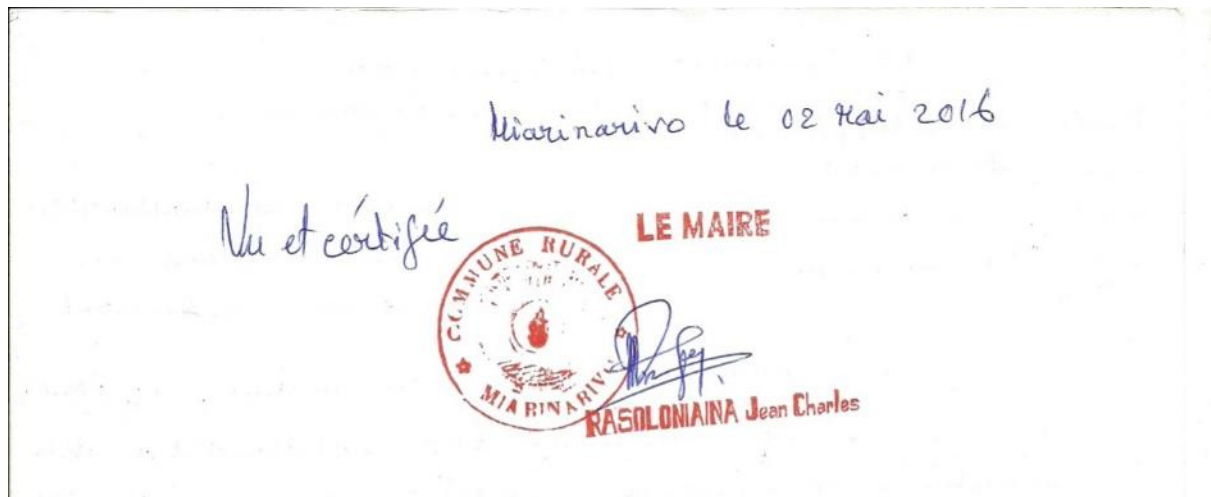 Miarinarivo le 02 Mai 2016
Vu et cértifiée
LE MAIRE
COMMUNE RURALE
MIARINARIVO
RASOLONIAINA Jean Charles